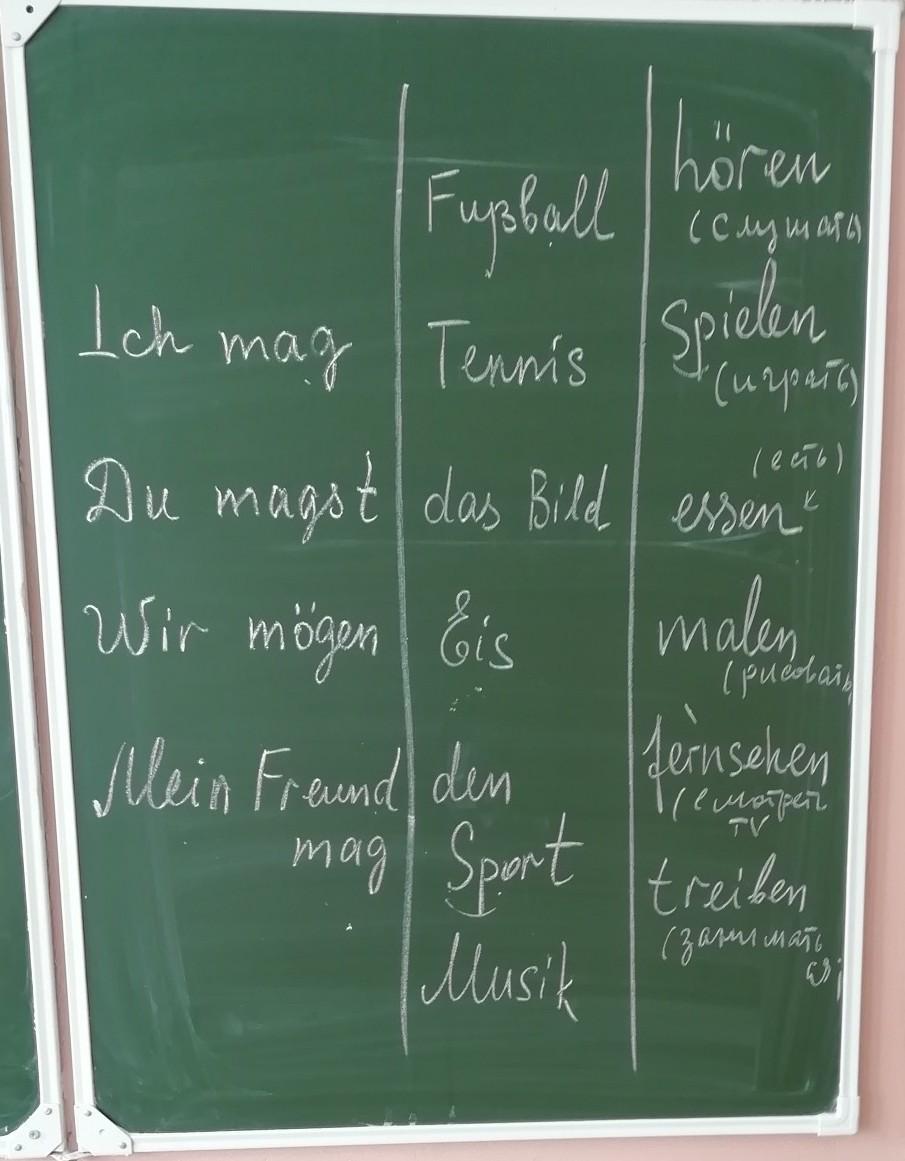 Ich mag
Du magst
Wir mögen
Mein Freund
mag
Fußball
Tennis
das Bild
Eis
den
Sport
Musik
hören
(слушать)
Spielen
(играть)
(есть)
essen
malen
(рисовать
fernsehen
(смотреть
TV
treiben
(занимать
ся)